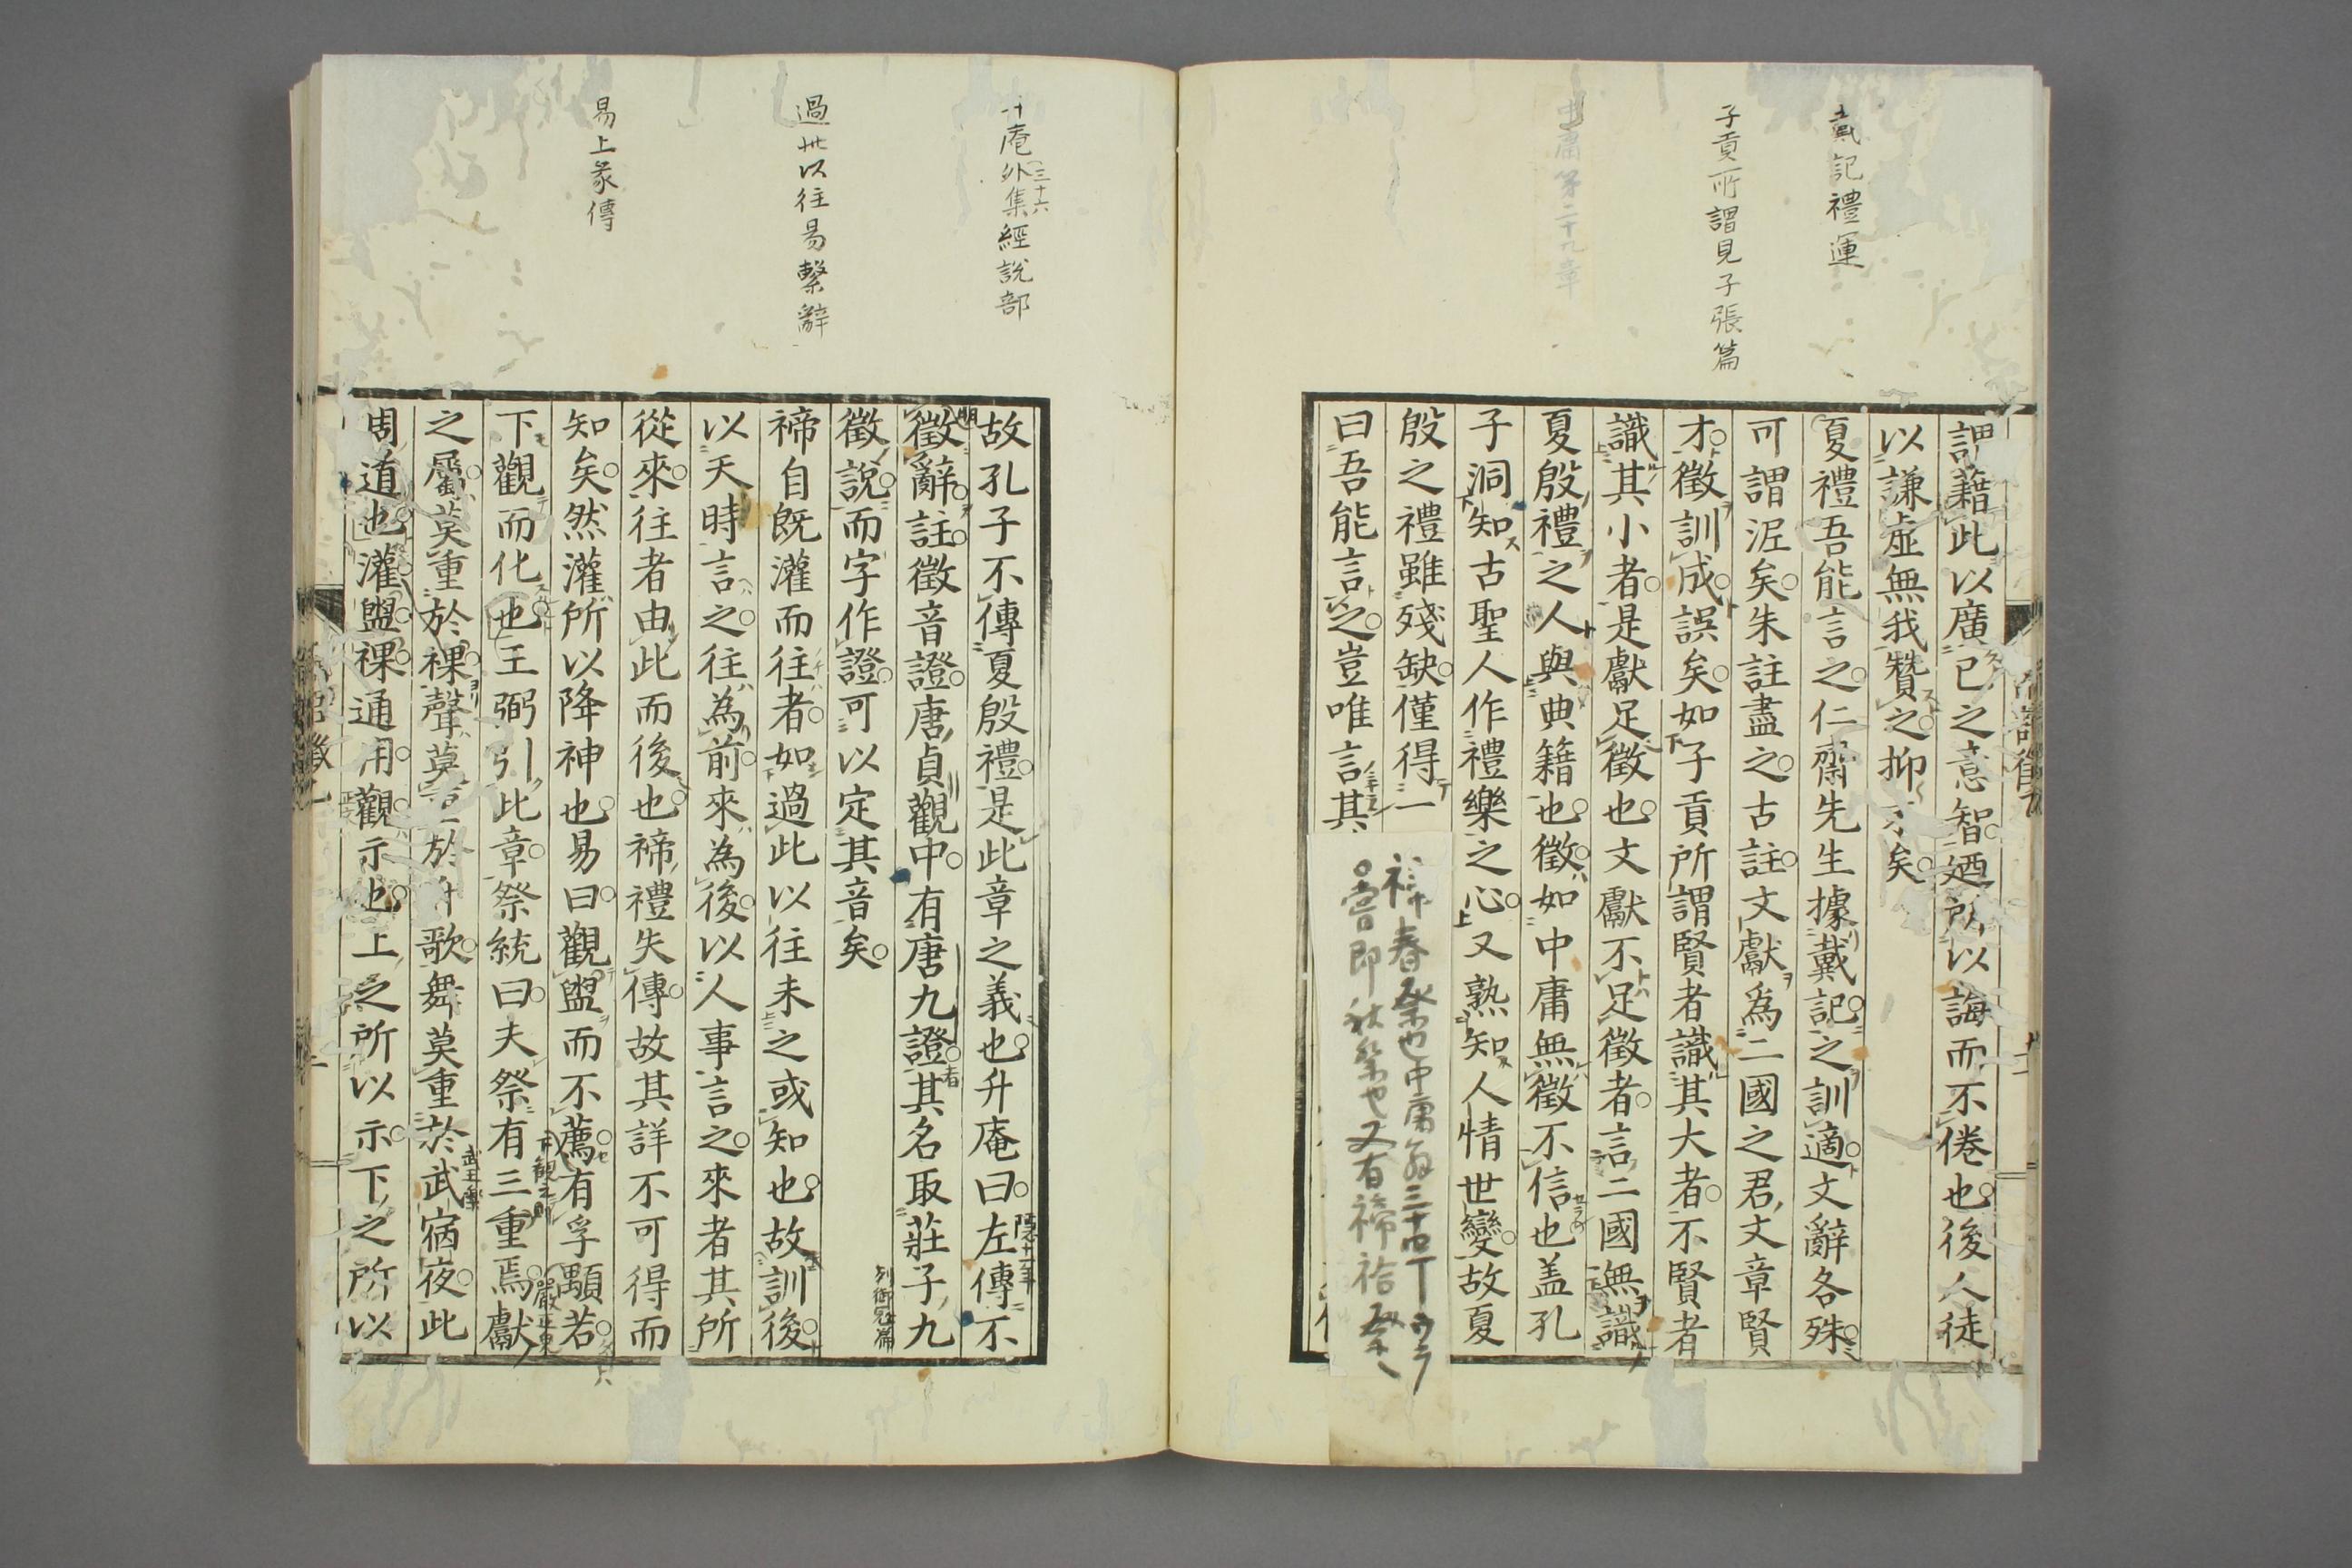 戴記禮運
子貢所謂見子張篇
中庸第二十九章
謂藉此以廣己之意智廼所以誨而不倦也後人徒
以謙虛無我贊之抑末矣
夏禮吾能言之仁齋先生據戴記之訓適文辭各殊
可謂泥矣朱註盡之古註文獻爲二國之君文章賢
才徵訓成誤矣如子貢所謂賢者識其大者不賢者
識其小者是獻足徵也文獻不足徵者言二國無識
夏殷禮之人與典籍也徵如中庸無徵不信也盖孔
子洞知古聖人作禮樂之心又熟知人情世變故夏
殷之禮雖殘缺僅得一
曰吾能言之豈唯言其
春祭也中庸
嘗即秋祭也又有禘祫祭
升庵外集經說部
三十六
過此以往易繫辭
易上彖傳
故孔子不傳夏殷禮是此章之義也升庵曰左傳不
徵辭註徵音證唐貞觀中有唐九證其名取莊子九
徵說而字作證可以定其音矣
禘自既灌而往者如過此以往未之或知也故訓後
以天時言之往為前來為後以人事言之來者其所
從來往者由此而後也禘禮失傳故其詳不可得而
知矣然灌所以降神也易曰觀盥而不薦有孚顒若
下觀而化也王弼引此章祭統曰夫祭有三重焉獻
之屬莫重於祼聲莫重於升歌舞莫重於武宿夜此
周道也灌盥祼通用觀示也上之所以示下之所以